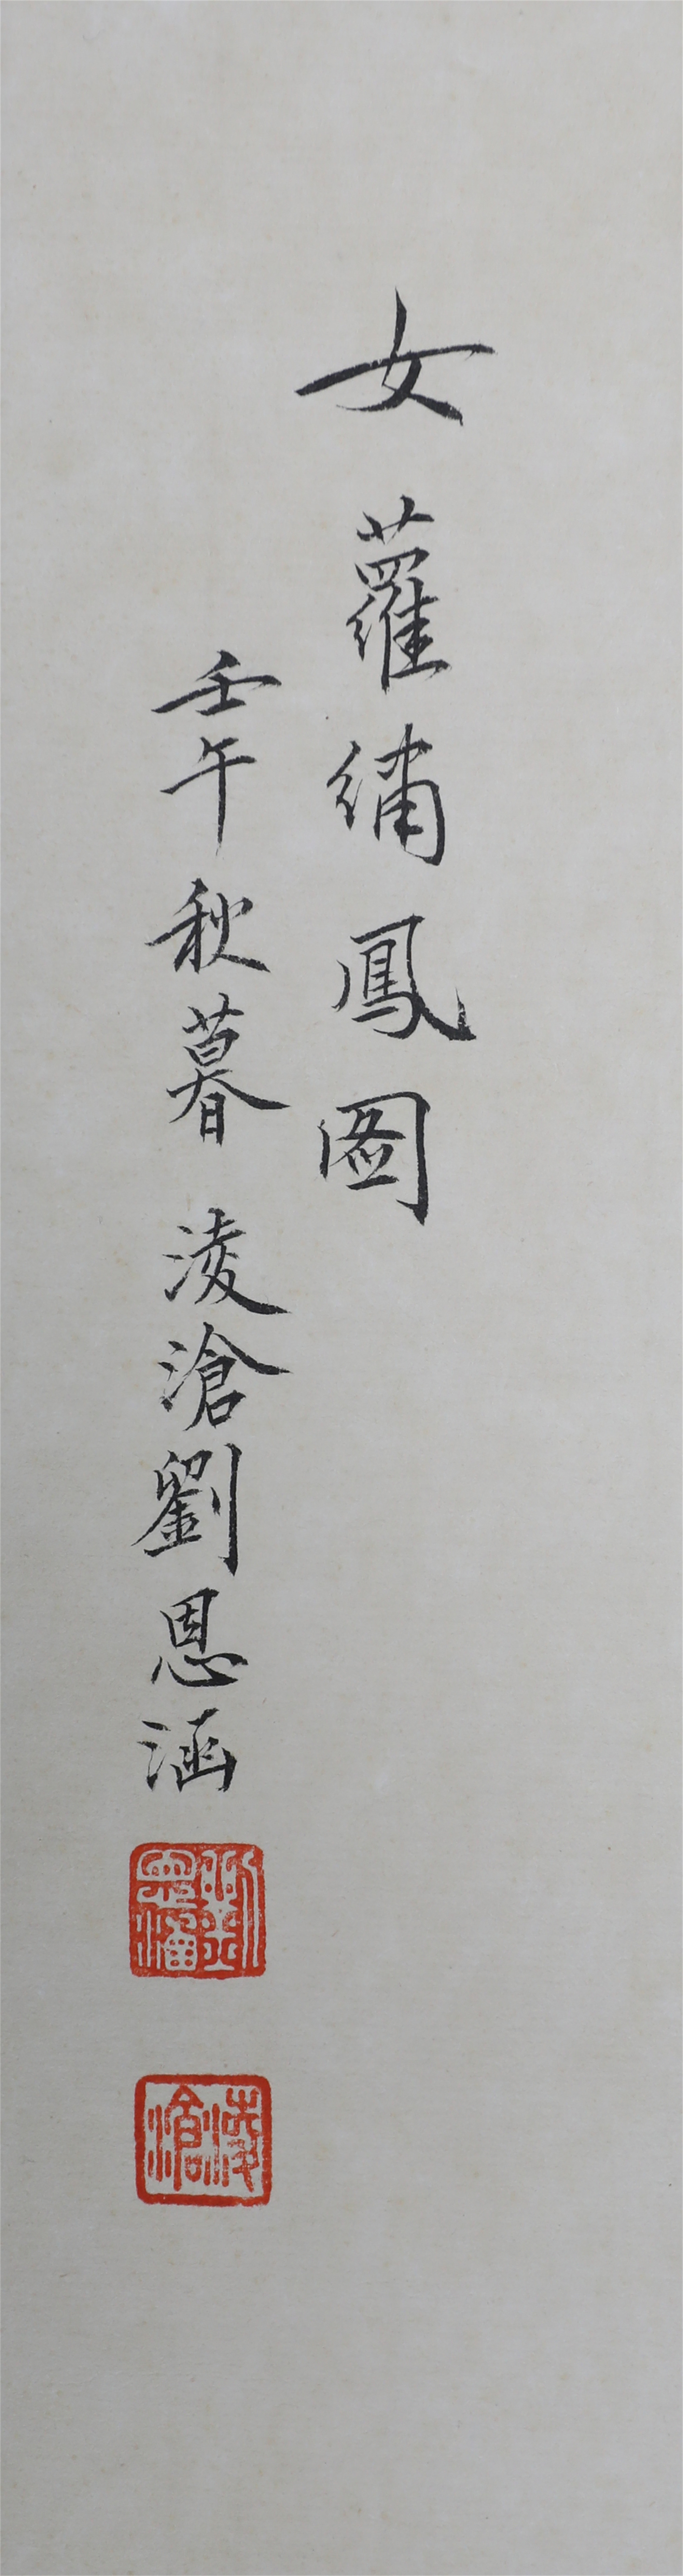 女蘿繡鳳圖
壬午秋暮淩滄劉恩涵
劉恩涵
淩滄